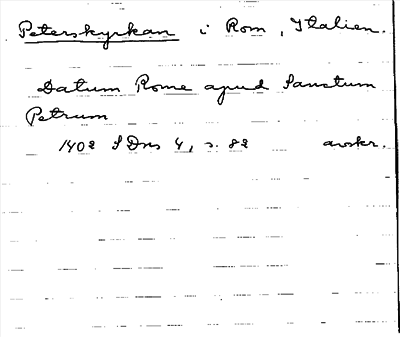 Peterskyrkan i Rom, Italien.
Datum Rome apud Sanctum
Petrum
1402 SDns 4, s. 82 avskr.